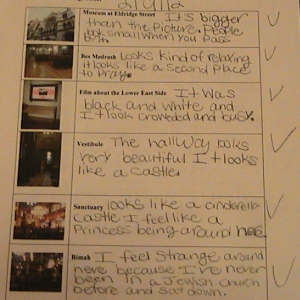 Museum at Eldridge Street It's bigger
than the picture. People
look small when you pass
by it.
Bes Medrash Looks kind of relaxing
it looks like a second place
to Pray.
Film about the Lower East Side It was
black and white and
It look crowded and busy.
Vestibule The hallway looks
very beautiful It looks
like a castle.
Sanctuary looks like a cinderella
castle I feel like a
Princess being around here.
Bimah I feel strange around
here because I've never
been in a Jewish church
before and sat down.